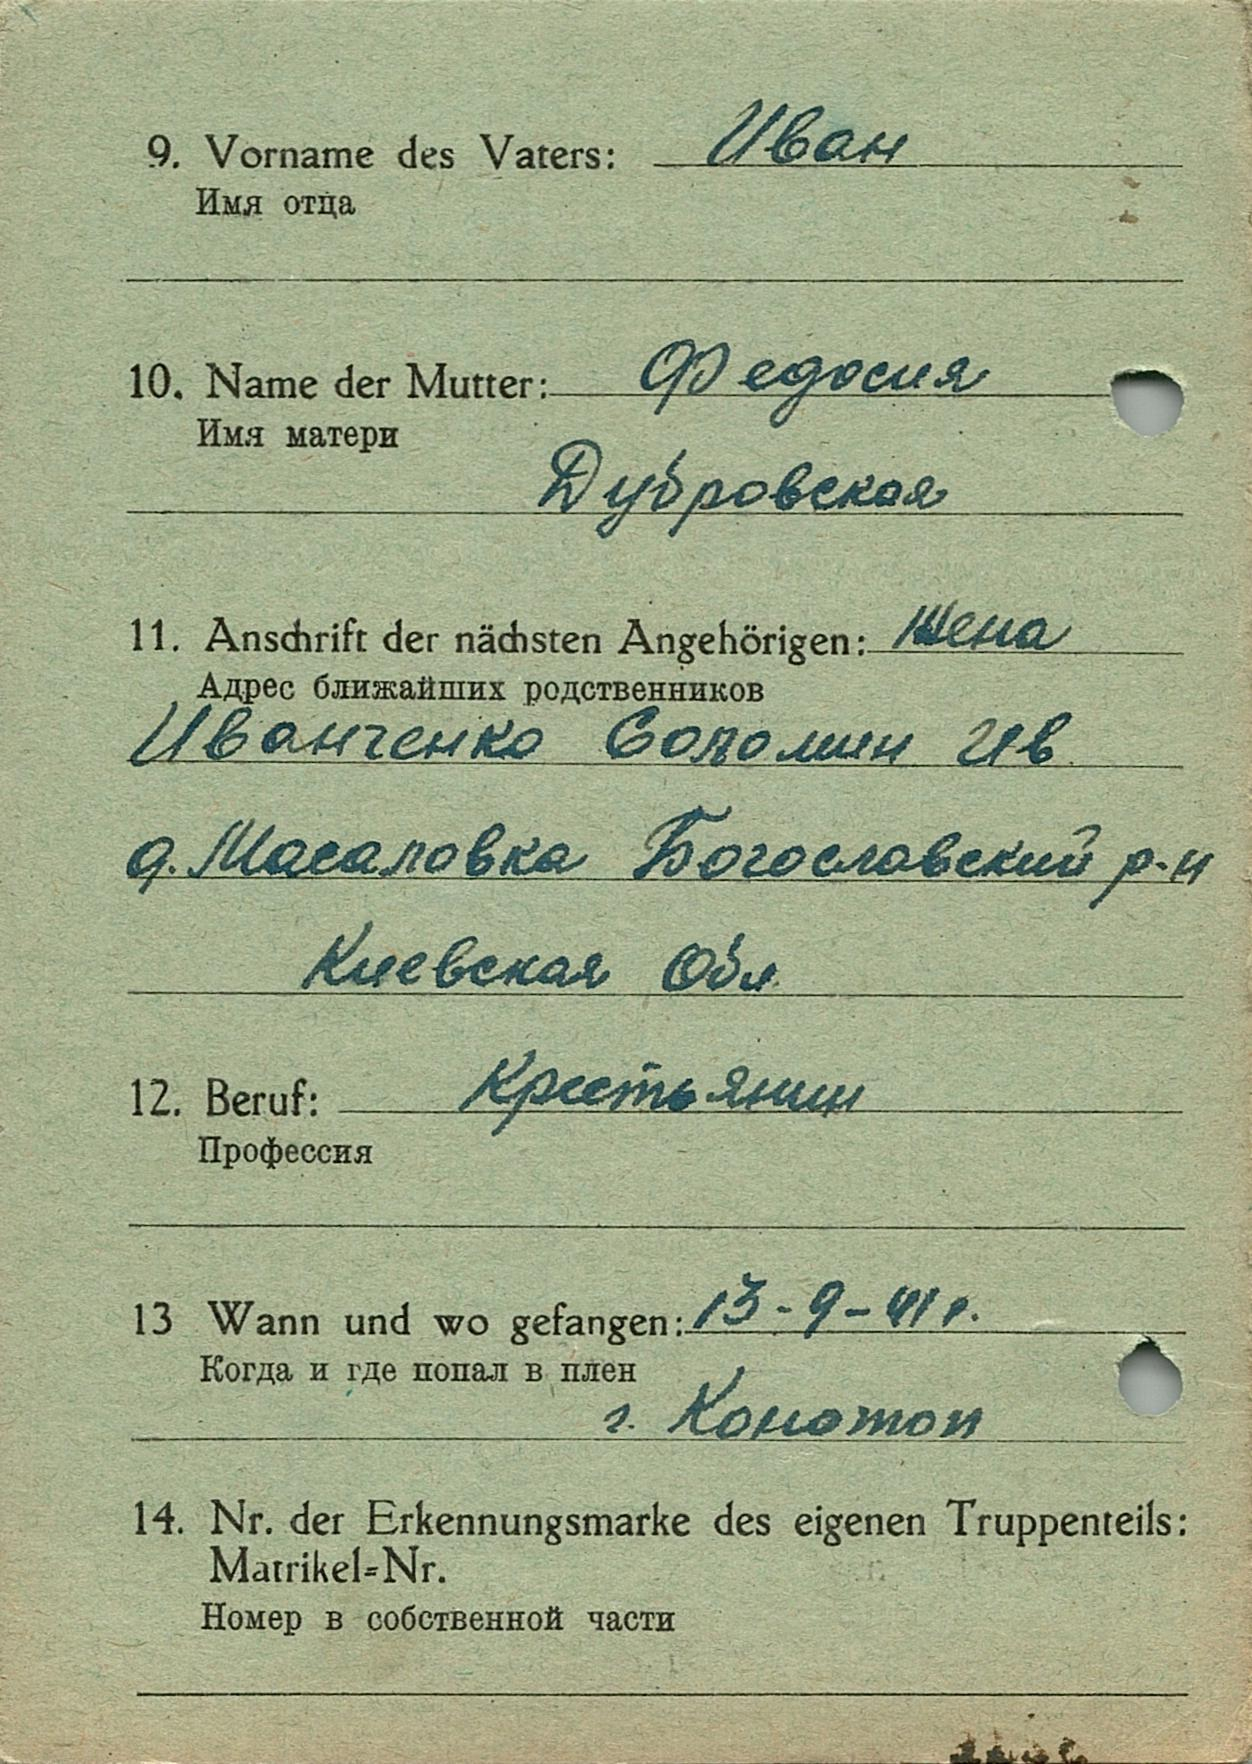 9. Vorname des Vaters: Иван
Имя отца
10. Name der Mutter: Федосия
Имя матери
Дубровская
11. Anschrift der nächsten Angehörigen: жена
Адрес ближайших родственников
Иванченко Соломин Ив
д. Масаловка Богославский р-н
Киевская Обл
12. Beruf: Крестьянин
Профессия
13 Wann und wo gefangen: 13-9-41 г.
Когда и где попал в плен
г. Конотоп
14. Nr. der Erkennungsmarke des eigenen Truppenteils:
Matrikel=Nr.
Номер в собственной части